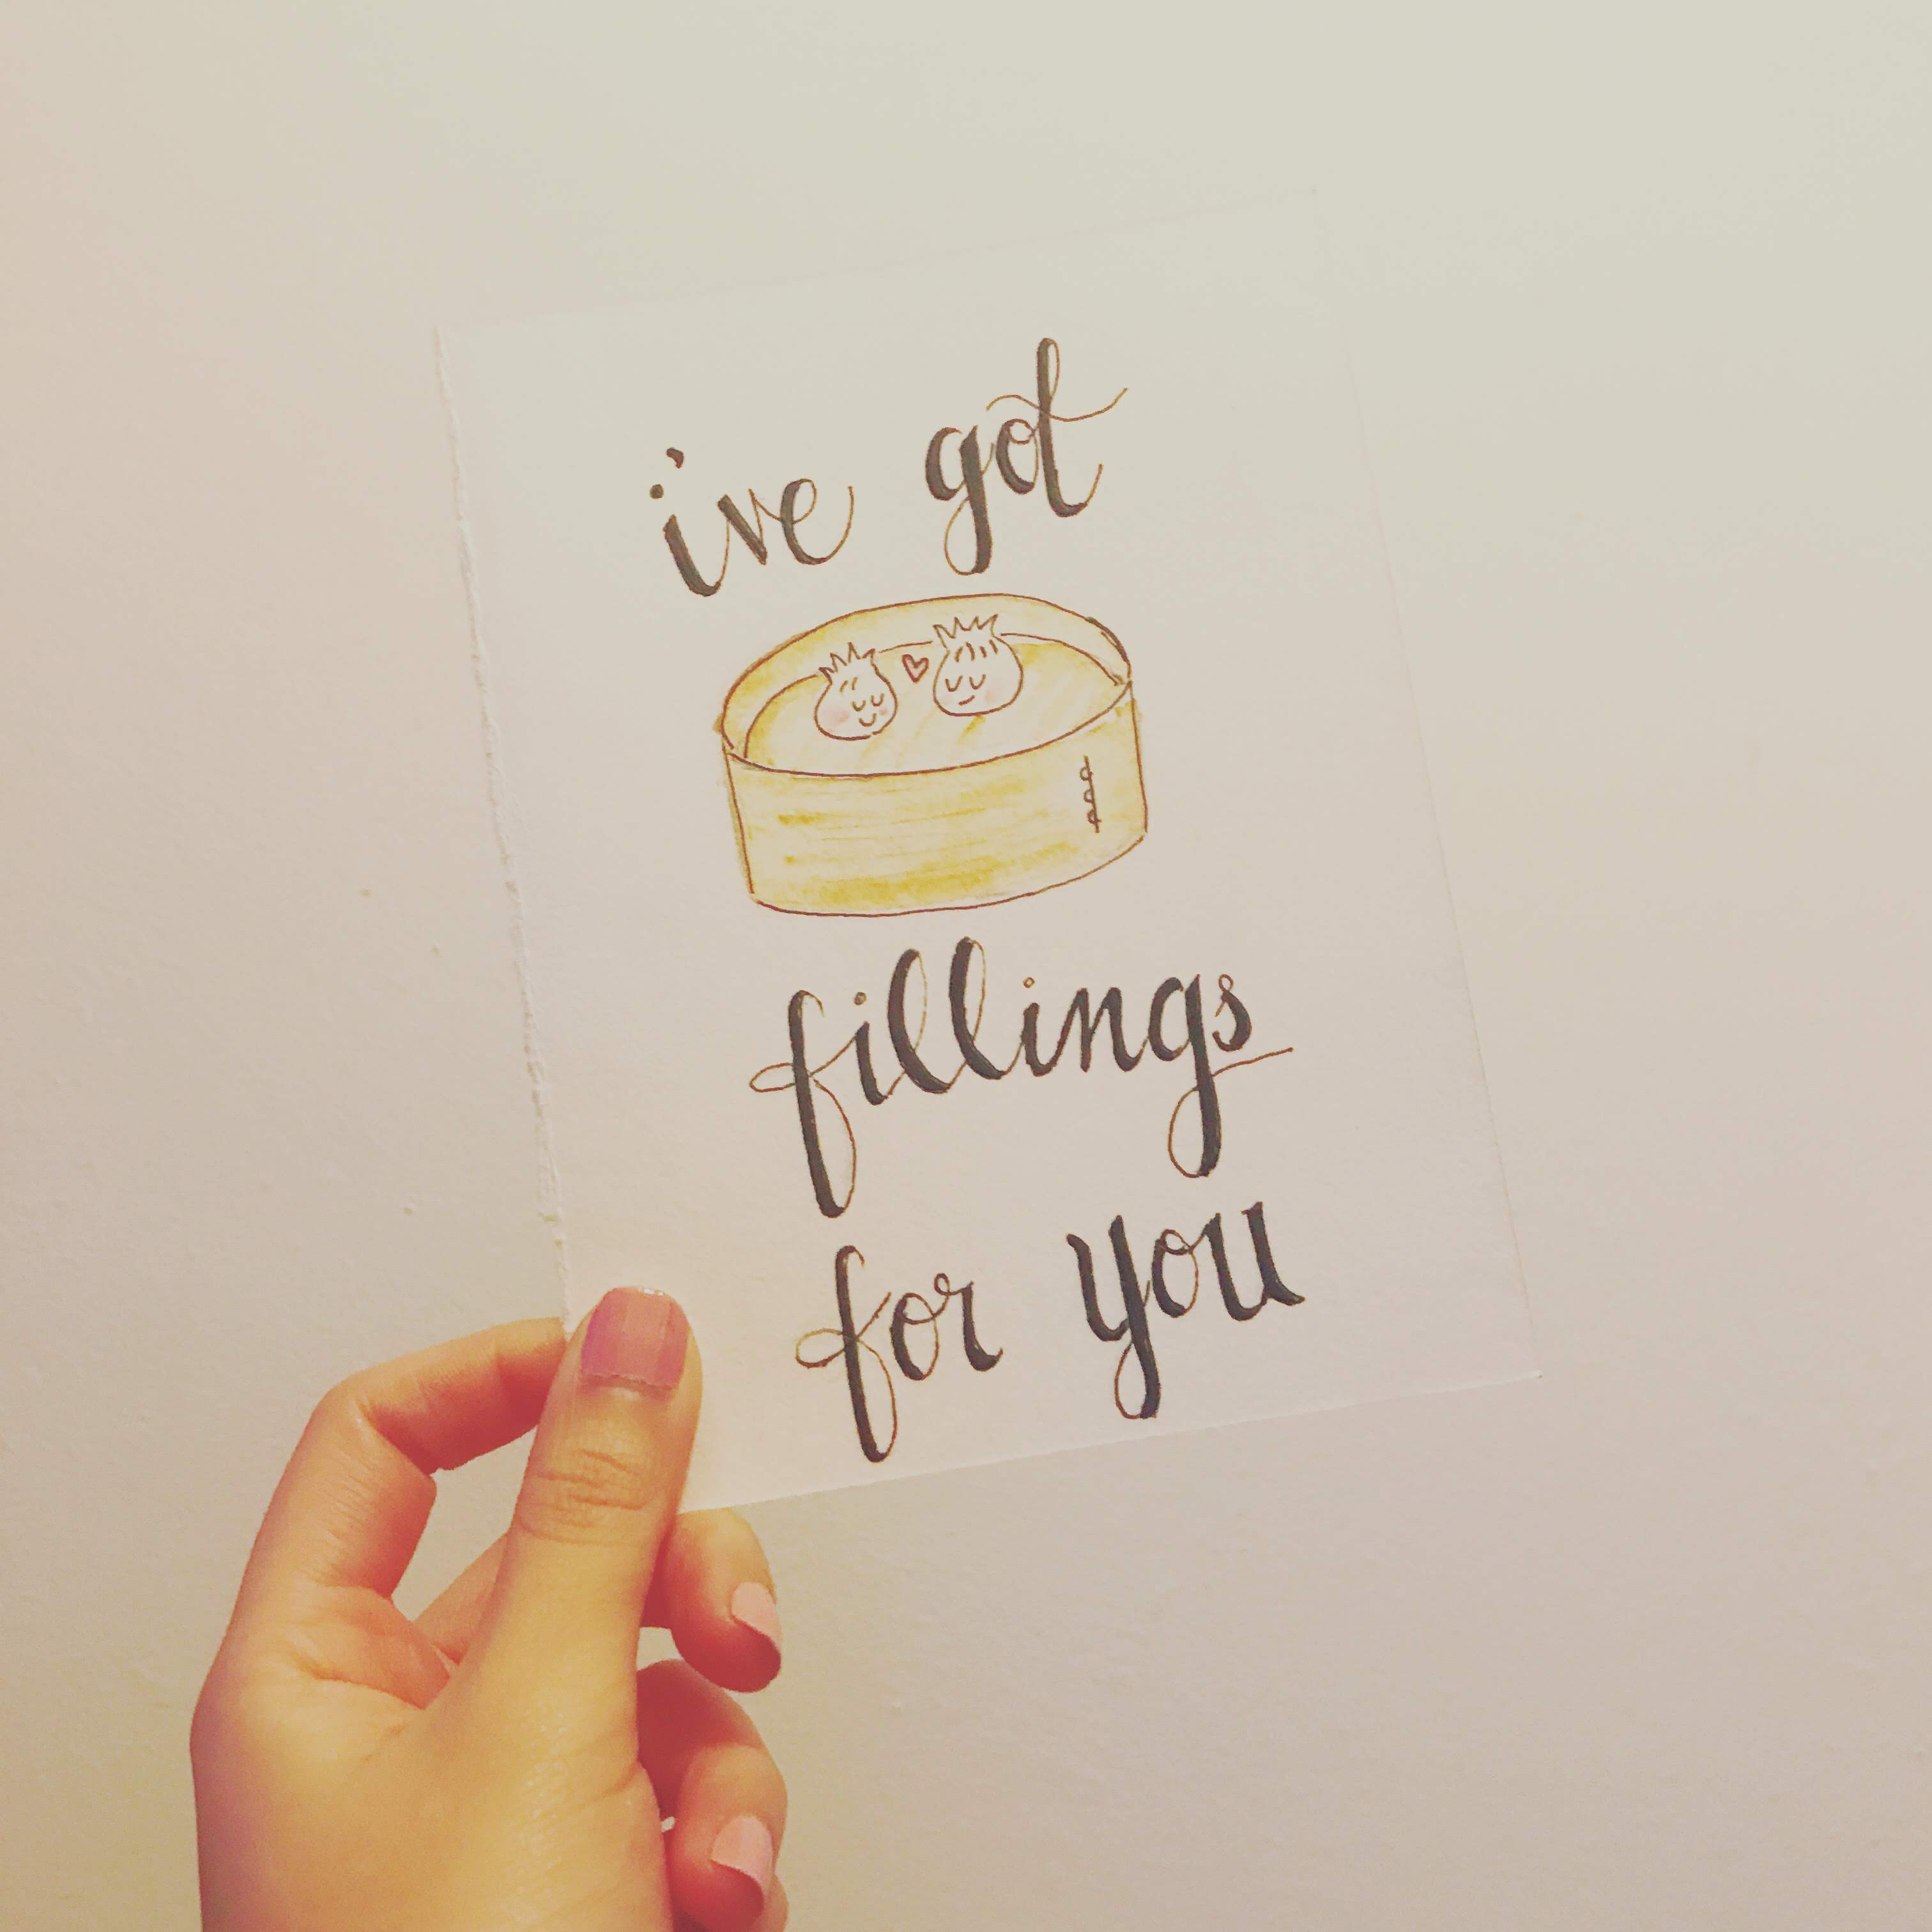 i've got
fillings
for you